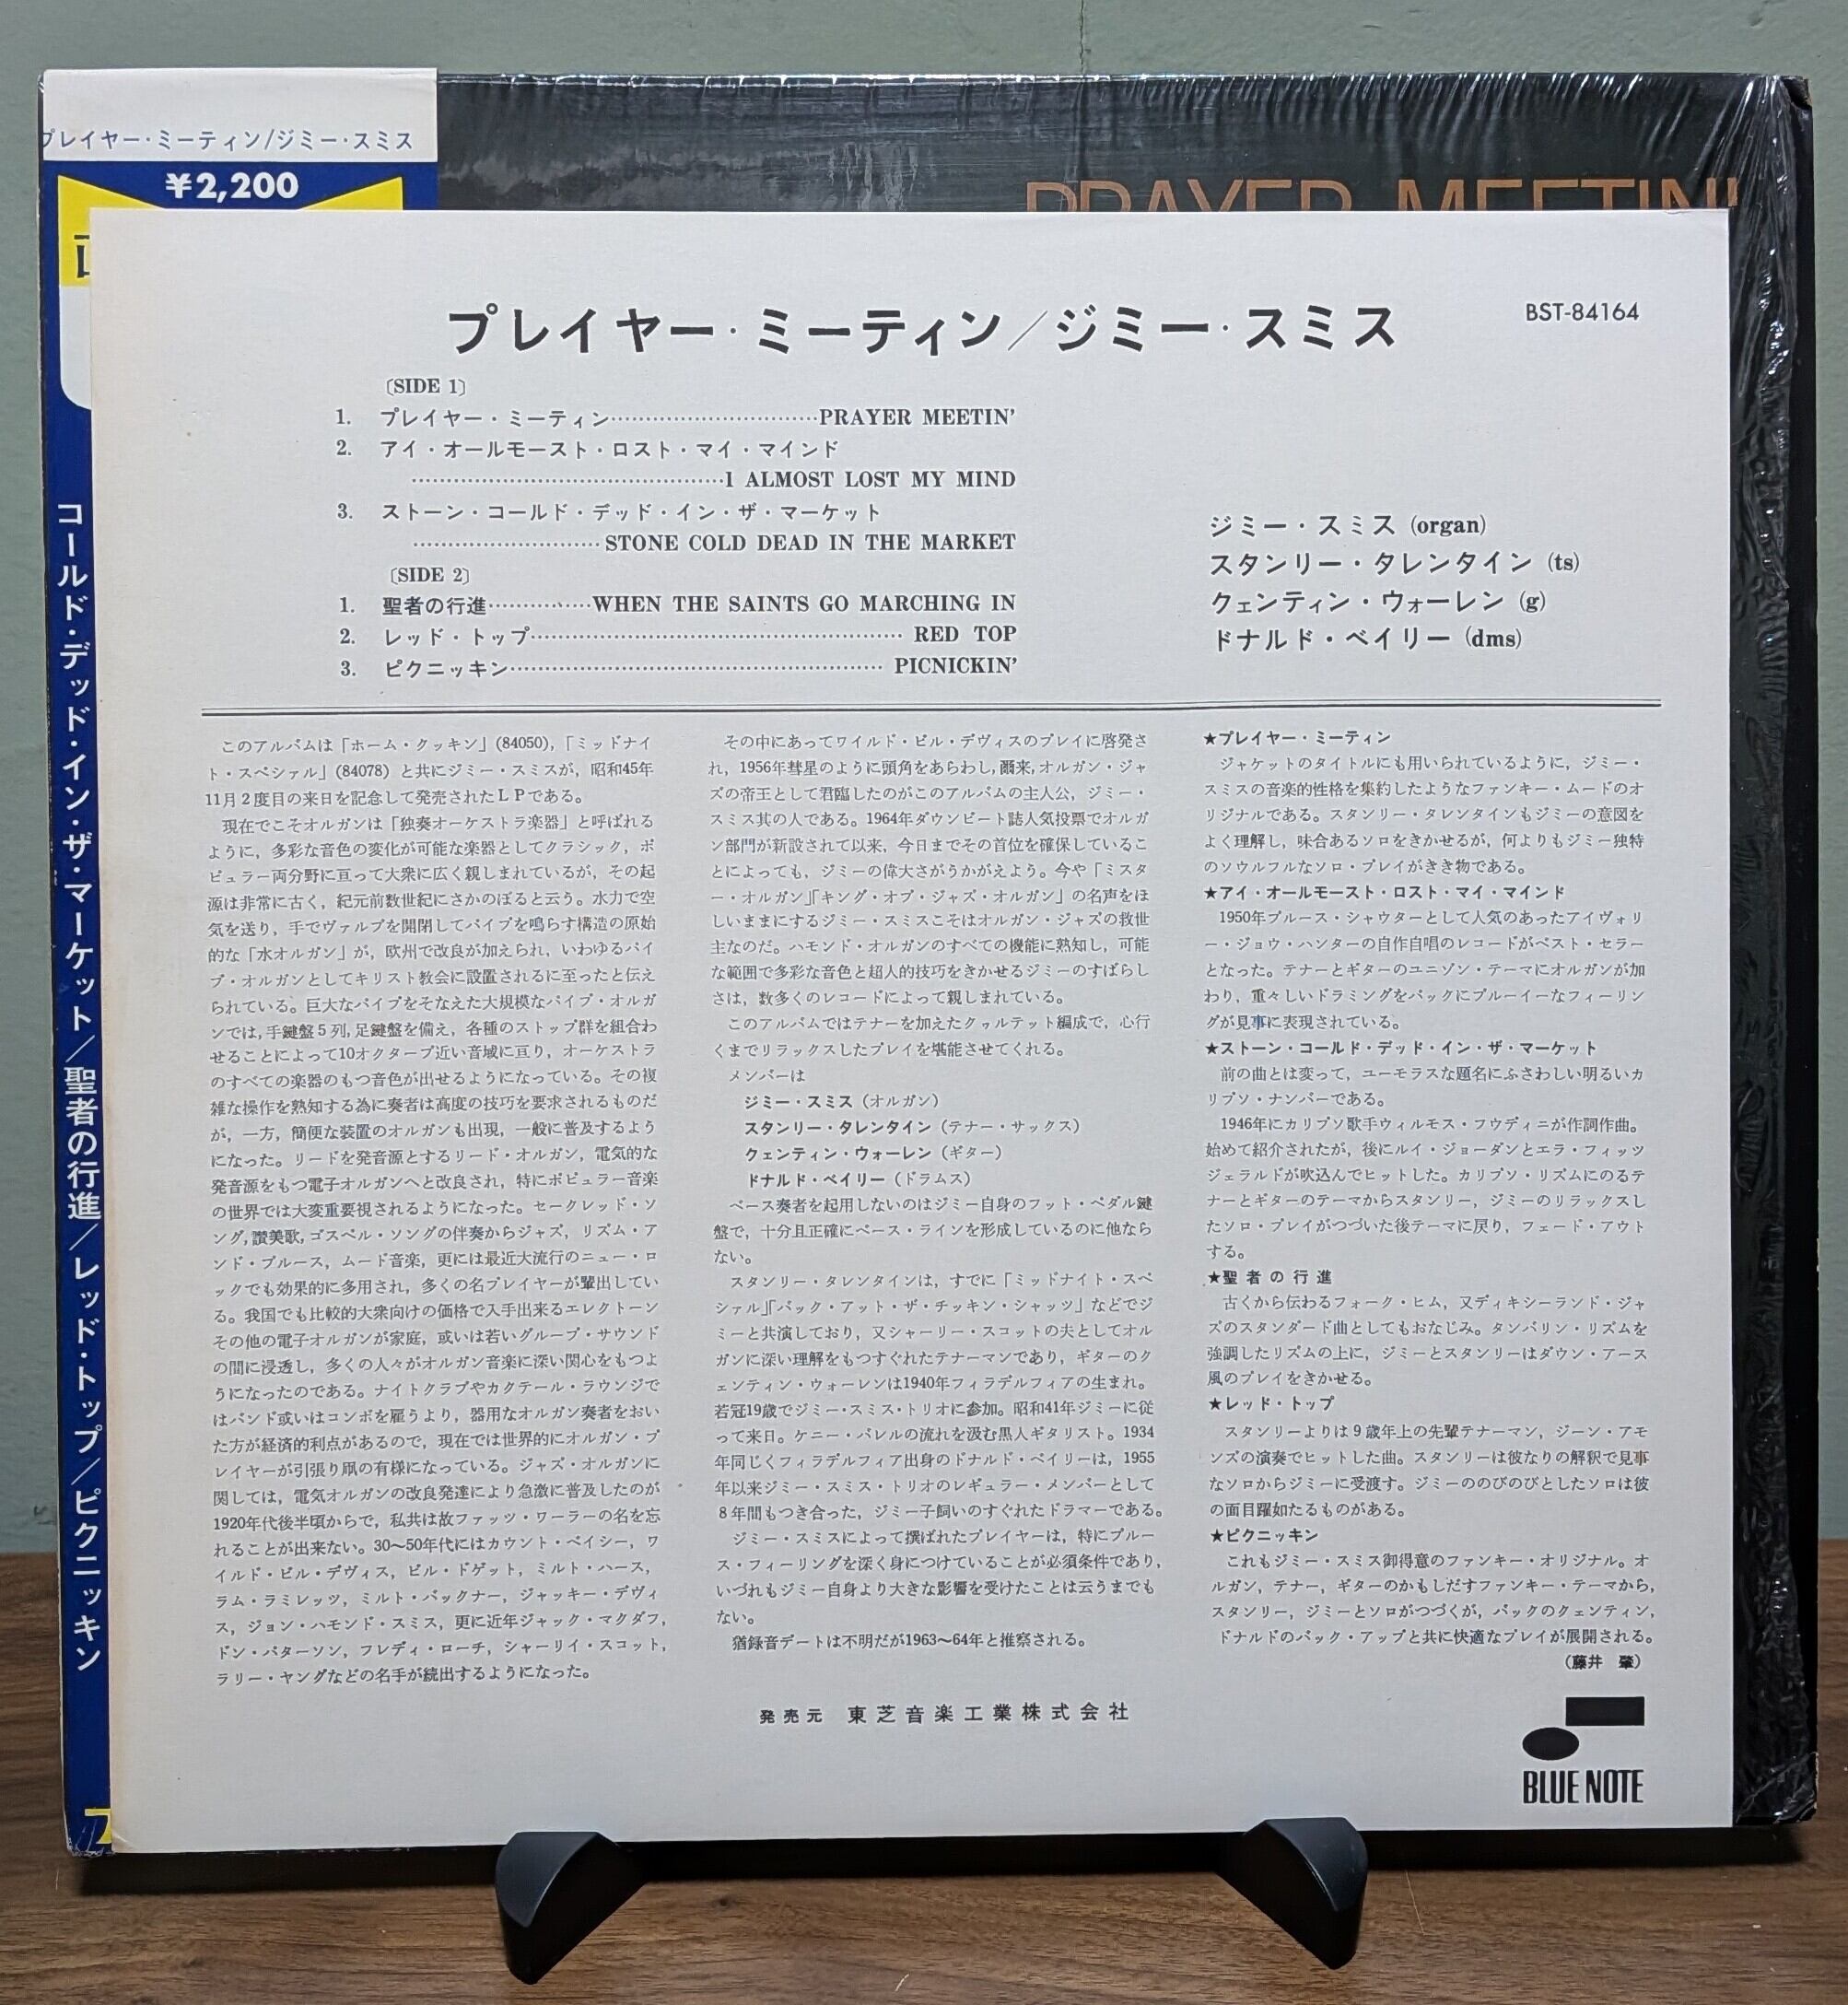 プレイヤー・ミーティン/ジミー・スミス
¥2,200
PRAYER MEETIN'
コールド・デッド・イン・ザ・マーケット/聖者の行進/レッド・トップ/ピクニッキン
プレイヤー・ミーティン/ジミー・スミス
BST-84164
〔SIDE 1〕
1. プレイヤー・ミーティン…………………………PRAYER MEETIN'
2. アイ・オールモースト・ロスト・マイ・マインド
………………………………………I ALMOST LOST MY MIND
3. ストーン・コールド・デッド・イン・ザ・マーケット
………………………STONE COLD DEAD IN THE MARKET
〔SIDE 2〕
1. 聖者の行進……………WHEN THE SAINTS GO MARCHING IN
2. レッド・トップ……………………………………………… RED TOP
3. ピクニッキン……………………………………………… PICNICKIN'
ジミー・スミス (organ)
スタンリー・タレンタイン (ts)
クェンティン・ウォーレン (g)
ドナルド・ベイリー (dms)
このアルバムは「ホーム・クッキン」(84050),「ミッドナイ
ト・スペシァル」(84078) と共にジミー・スミスが, 昭和45年
11月2度目の来日を記念して発売されたLPである。
現在でこそオルガンは「独奏オーケストラ楽器」と呼ばれる
ように, 多彩な音色の変化が可能な楽器としてクラシック, ポ
ピュラー両分野に亘って大衆に広く親しまれているが, その起
源は非常に古く, 紀元前数世紀にさかのぼると云う。水力で空
気を送り, 手でヴァルブを開閉してパイプを鳴らす構造の原始
的な「水オルガン」が, 欧州で改良が加えられ, いわゆるパイ
プ・オルガンとしてキリスト教会に設置されるに至ったと伝え
られている。巨大なパイプをそなえた大規模なパイプ・オルガ
ンでは, 手鍵盤5列, 足鍵盤を備え, 各種のストップ群を組合わ
せることによって10オクターブ近い音域に亘り, オーケストラ
のすべての楽器のもつ音色が出せるようになっている。その複
雑な操作を熟知する為に奏者は高度の技巧を要求されるものだ
が, 一方, 簡便な装置のオルガンも出現, 一般に普及するよう
になった。リードを発音源とするリード・オルガン, 電気的な
発音源をもつ電子オルガンへと改良され, 特にポピュラー音楽
の世界では大変重要視されるようになった。セークレッド・ソ
ング, 讃美歌, ゴスペル・ソングの伴奏からジャズ, リズム・ア
ンド・ブルース, ムード音楽, 更には最近大流行のニュー・ロ
ックでも効果的に多用され, 多くの名プレイヤーが輩出してい
る。我国でも比較的大衆向けの価格で入手出来るエレクトーン
その他の電子オルガンが家庭, 或いは若いグループ・サウンド
の間に浸透し, 多くの人々がオルガン音楽に深い関心をもつよ
うになったのである。ナイトクラブやカクテール・ラウンジで
はバンド或いはコンボを雇うより, 器用なオルガン奏者をおい
た方が経済的利点があるので, 現在では世界的にオルガン・プ
レイヤーが引張り凧の有様になっている。ジャズ・オルガンに
関しては, 電気オルガンの改良発達により急激に普及したのが
1920年代後半頃からで, 私共は故ファッツ・ワーラーの名を忘
れることが出来ない。30〜50年代にはカウント・ベイシー, ワ
イルド・ビル・デヴィス, ビル・ドゲット, ミルト・ハース,
ラム・ラミレッツ, ミルト・バックナー, ジャッキー・デヴィ
ス, ジョン・ハモンド・スミス, 更に近年ジャック・マクダフ,
ドン・パターソン, フレディ・ローチ, シャーリイ・スコット,
ラリー・ヤングなどの名手が続出するようになった。
その中にあってワイルド・ビル・デヴィスのプレイに啓発さ
れ, 1956年彗星のように頭角をあらわし, 爾来, オルガン・ジャ
ズの帝王として君臨したのがこのアルバムの主人公, ジミー・
スミス其の人である。1964年ダウンビート誌人気投票でオルガ
ン部門が新設されて以来, 今日までその首位を確保しているこ
とによっても, ジミーの偉大さがうかがえよう。今や「ミスタ
ー・オルガン」「キング・オブ・ジャズ・オルガン」の名声をほ
しいままにするジミー・スミスこそはオルガン・ジャズの救世
主なのだ。ハモンド・オルガンのすべての機能に熟知し, 可能
な範囲で多彩な音色と超人的技巧をきかせるジミーのすばらし
さは, 数多くのレコードによって親しまれている。
このアルバムではテナーを加えたクヮルテット編成で, 心行
くまでリラックスしたプレイを堪能させてくれる。
メンバーは
ジミー・スミス (オルガン)
スタンリー・タレンタイン (テナー・サックス)
クェンティン・ウォーレン (ギター)
ドナルド・ベイリー (ドラムス)
ベース奏者を起用しないのはジミー自身のフット・ペダル鍵
盤で, 十分且正確にベース・ラインを形成しているのに他なら
ない。
スタンリー・タレンタインは, すでに「ミッドナイト・スペ
シァル」「バック・アット・ザ・チッキン・シャッツ」などでジ
ミーと共演しており, 又シャーリー・スコットの夫としてオル
ガンに深い理解をもつすぐれたテナーマンであり, ギターのク
ェンティン・ウォーレンは1940年フィラデルフィアの生まれ。
若冠19歳でジミー・スミス・トリオに参加。昭和41年ジミーに従
って来日。ケニー・バレルの流れを汲む黒人ギタリスト。1934
年同じくフィラデルフィア出身のドナルド・ベイリーは, 1955
年以来ジミー・スミス・トリオのレギュラー・メンバーとして
8年間もつき合った, ジミー子飼いのすぐれたドラマーである。
ジミー・スミスによって撰ばれたプレイヤーは, 特にブルー
ス・フィーリングを深く身につけていることが必須条件であり,
いづれもジミー自身より大きな影響を受けたことは云うまでも
ない。
猶録音デートは不明だが1963〜64年と推察される。
★プレイヤー・ミーティン
ジャケットのタイトルにも用いられているように, ジミー・
スミスの音楽的性格を集約したようなファンキー・ムードのオ
リジナルである。スタンリー・タレンタインもジミーの意図を
よく理解し, 味合あるソロをきかせるが, 何よりもジミー独特
のソウルフルなソロ・プレイがきき物である。
★アイ・オールモースト・ロスト・マイ・マインド
1950年ブルース・シャウターとして人気のあったアイヴォリ
ー・ジョウ・ハンターの自作自唱のレコードがベスト・セラー
となった。テナーとギターのユニゾン・テーマにオルガンが加
わり, 重々しいドラミングをバックにブルーイーなフィーリン
グが見事に表現されている。
★ストーン・コールド・デッド・イン・ザ・マーケット
前の曲とは変って, ユーモラスな題名にふさわしい明るいカ
リプソ・ナンバーである。
1946年にカリプソ歌手ウィルモス・フウディニが作詞作曲。
始めて紹介されたが, 後にルイ・ジョーダンとエラ・フィッツ
ジェラルドが吹込んでヒットした。カリプソ・リズムにのるテ
ナーとギターのテーマからスタンリー, ジミーのリラックスし
たソロ・プレイがつづいた後テーマに戻り, フェード・アウト
する。
★聖者の行進
古くから伝わるフォーク・ヒム, 又ディキシーランド・ジャ
ズのスタンダード曲としてもおなじみ。タンバリン・リズムを
強調したリズムの上に, ジミーとスタンリーはダウン・アース
風のプレイをきかせる。
★レッド・トップ
スタンリーよりは9歳年上の先輩テナーマン, ジーン・アモ
ンズの演奏でヒットした曲。スタンリーは彼なりの解釈で見事
なソロからジミーに受渡す。ジミーののびのびとしたソロは彼
の面目躍如たるものがある。
★ピクニッキン
これもジミー・スミス御得意のファンキー・オリジナル。オ
ルガン, テナー, ギターのかもしだすファンキー・テーマから,
スタンリー, ジミーとソロがつづくが, バックのクェンティン,
ドナルドのバック・アップと共に快適なプレイが展開される。
(藤井 肇)
発売元 東芝音楽工業株式会社
BLUE NOTE